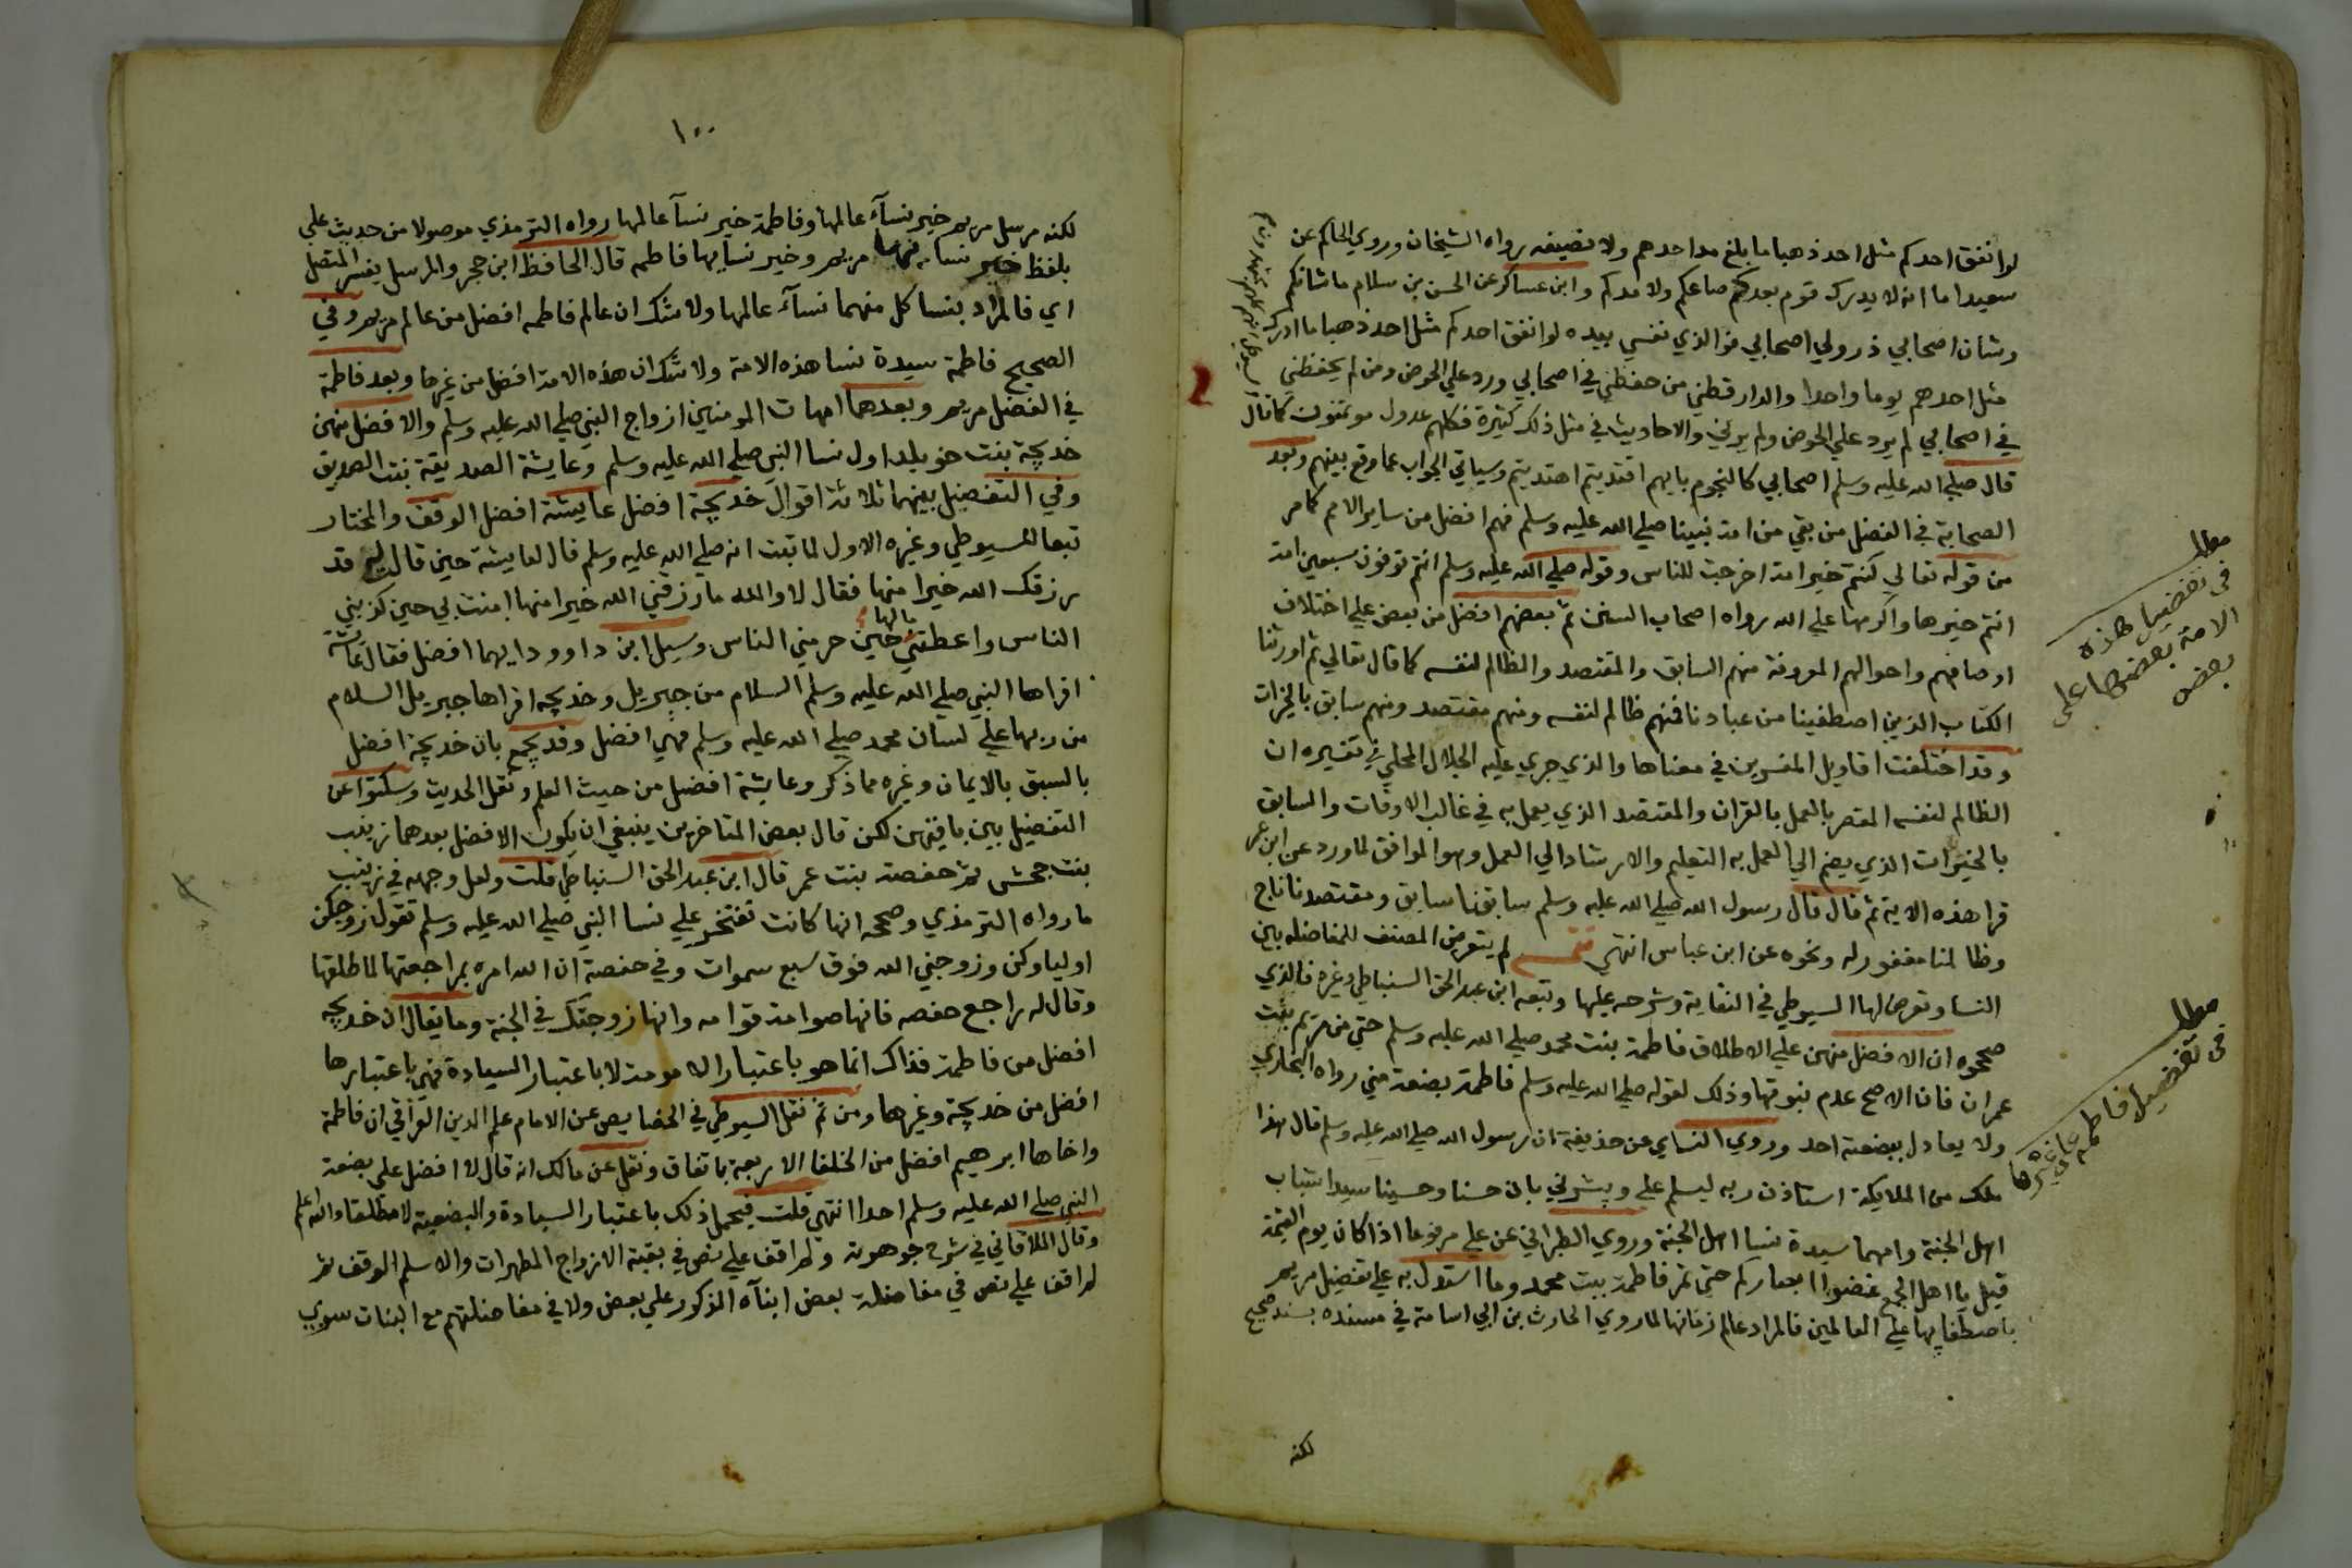 لو انفق احدكم مثل احد ذهبا ما بلغ مد احدهم ولا نصيفه رواه الشيخان وروي الحاكم عن
سعيد اما انه لا يدرك قوم بعدكم صاعكم ولا مدكم وابن عساكر عن الحسن بن سلام ما شانكم
وشان اصحابي ذروا لي اصحابي فوالذي نفسي بيده لو انفق احدكم مثل احد ذهبا ما ادرك
مثل احدهم يوما واحدا والدارقطني من حفظني في اصحابي ورد علي الحوض ومن لم يحفظني
في اصحابي لم يرد علي الحوض ولم يرني والاحاديث في مثل ذلك كثيرة فكلهم عدول موتمنون كما قال
قال صلي الله عليه وسلم اصحابي كالنجوم بايهم اقتديتم اهتديتم وسياتي الجواب عما وقع بينهم وبعد
الصحابة في الفضل من بقي من امة نبينا صلي الله عليه وسلم فهم افضل من ساير الامم كما مر
من قوله تعالي كنتم خير امة اخرجت للناس وقوله صلي الله عليه وسلم انتم توفون سبعين امة
انتم خيرها واكرمها علي الله رواه اصحاب السنن ثم بعضهم افضل من بعض علي اختلاف
اوصافهم واحوالهم المعروفة منهم السابق والمقتصد والظالم لنفسه كما قال تعالي ثم اورثنا
الكتاب الذين اصطفينا من عبادنا فمنهم ظالم لنفسه ومنهم مقتصد ومنهم سابق بالخيرات
وقد اختلفت اقاويل المفسرين في معناها والذي جري عليه الجلال المحلي في تفسيره ان
الظالم لنفسه المقصر بالعمل بالقران والمقتصد الذي يعمل به في غالب الاوقات والسابق
بالخيرات الذي يضم الي العمل به التعليم والارشاد الي العمل وهو الموافق لما ورد عن ابن عمر
قرا هذه الاية ثم قال قال رسول الله صلي الله عليه وسلم سابقنا سابق ومقتصدنا ناج
وظالمنا مغفور له ونحوه عن ابن عباس انتهي لم يتعرض المصنف للمفاضله بين
النسا وتعرض لها السيوطي في النقاية وشرحه عليها وتبعه ابن عبد الحق السنباطي وغيره فالذي
صححوه ان الافضل منهن علي الاطلاق فاطمة بنت محمد صلي الله عليه وسلم حتي من مريم بنت
عمران فان الاصح عدم نبوتها وذلك لقوله صلي الله عليه وسلم فاطمة بضعة مني رواه البخاري
ولا يعادل ببضعته احد وروي النساي عن حذيفة ان رسول الله صلي الله عليه وسلم قال هذا
ملك من الملايكة استاذن ربه ليسلم علي ويبشرني بان حسنا وحسينا سيدا شباب
اهل الجنة وامهما سيدة نسا اهل الجنة وروي الطبراني عن علي مرفوعا اذا كان يوم القيمة
قيل يا اهل الجمع غضوا ابصاركم حتي تمر فاطمة بنت محمد وما استدل به علي تفضيل مريم
باصطفايها علي العالمين فالمراد عالم زمانها لما روي الحارث بن ابي اسامة في مسنده بسند صحيح
لكنه
مطلب
في تفضيل هذه
الامة بعضها على
بعض
مطلب
في تفضيل فاطمه على غيرها
١٠٠
لكنه مرسل مريم خير نسآء عالمها وفاطمة خير نسآ عالمها رواه الترمذي موصولا من حديث علي
بلفظ خير نسايها مريم وخير نسايها فاطمه قال الحافظ ابن حجر والمرسل يفسر المتصل
اي فالمراد بنسا كل منهما نسآء عالمها ولا شك ان عالم فاطمه افضل من عالم مريم وفي
الصحيح فاطمة سيدة نسا هذه الامة ولا شك ان هذه الامة افضل من غيرها وبعد فاطمة
في الفضل مريم وبعدهما امهات المومنين ازواج النبي صلي الله عليه وسلم والافضل منهن
خديجة بنت خويلد اول نسا النبي صلي الله عليه وسلم وعايشة الصديقة بنت الصديق
وفي التفضيل بينهما ثلاثة اقوال خديجة افضل عايشة افضل الوقف والمختار
تبعا للسيوطي وغيره الاول لما ثبت انه صلي الله عليه وسلم قال لعايشة حين قالت له قد
رزقك الله خيرا منها فقال لا والله ما رزقني الله خيرا منها امنت بي حين كذبني
الناس واعطتني مالها حين حرمني الناس وسيل ابن داوود ايهما افضل فقال عايشة
اقراها النبي صلي الله عليه وسلم السلام من جبريل وخديجه اقراها جبريل السلام
من ربها علي لسان محمد صلي الله عليه وسلم فهي افضل وقد يجمع بان خديجة افضل
بالسبق بالايمان وغيره مما ذكر وعايشة افضل من حيث العلم ونقل الحديث وسكتوا عن
التفضيل بين باقيهن لكن قال بعض المتاخرين ينبغي ان يكون الافضل بعدهما زينب
بنت جحش ثم حفصة بنت عمر قال ابن عبد الحق السنباطي قلت ولعل وجهه في زينب
ما رواه الترمذي وصححه انها كانت تفتخر علي نسا النبي صلي الله عليه وسلم تقول زوجكن
اولياوكن وزوجني الله فوق سبع سموات وفي حفصة ان الله امره بمراجعتها لما طلقها
وقال له راجع حفصه فانها صوامة قوامه وانها زوجتك في الجنة وما يقال ان خديجه
افضل من فاطمة فذاك انما هو باعتبار الامومة لا باعتبار السيادة فهي باعتبارها
افضل من خديجة وغيرها ومن ثم نقل السيوطي في الخصايص عن الامام علم الدين العراقي ان فاطمة
واخاها ابرهيم افضل من الخلفا الاربعة باتفاق ونقل عن مالك انه قال لا افضل علي بضعة
النبي صلي الله عليه وسلم احدا انتهي قلت فيحمل ذلك باعتبار السيادة والبضعية لا مطلقا والله اعلم
وقال اللاقاني في شرح جوهرته ولم اقف علي نص في بقية الازواج المطهرات والاسلم الوقف ثم
لم اقف علي نص في مفاضلة بعض ابنآه الذكور علي بعض ولا في مفاضلتهم مع البنات سوي